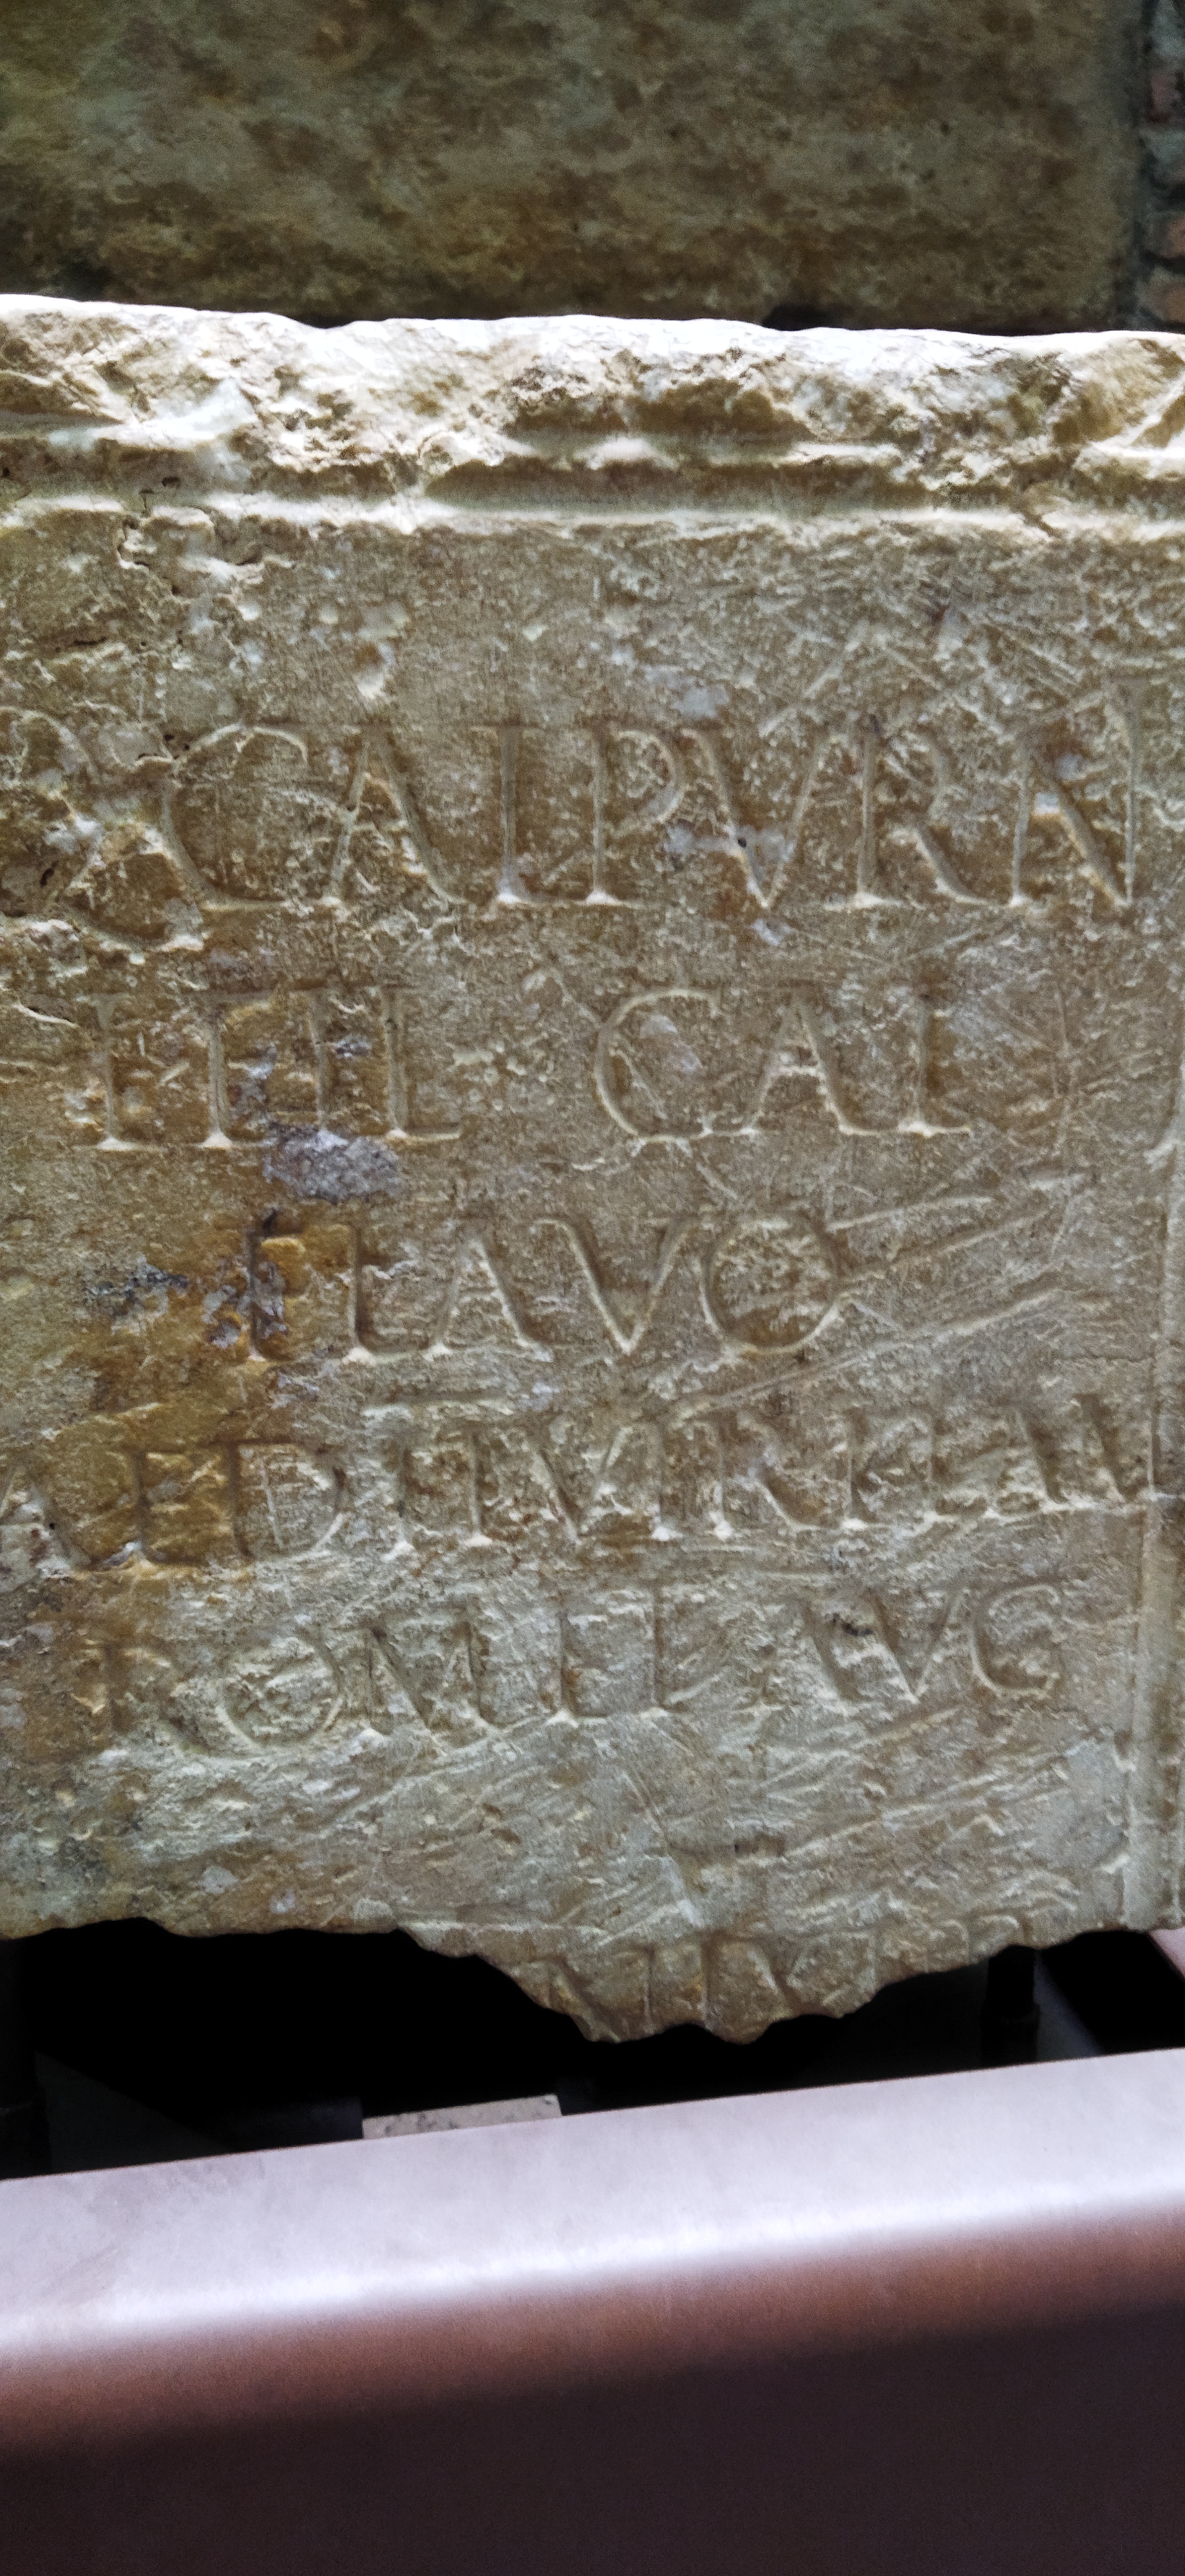 Q CALPVRN
FIL GAL
FLAVO
AED IIVIR FLAM
ROM ET AVG